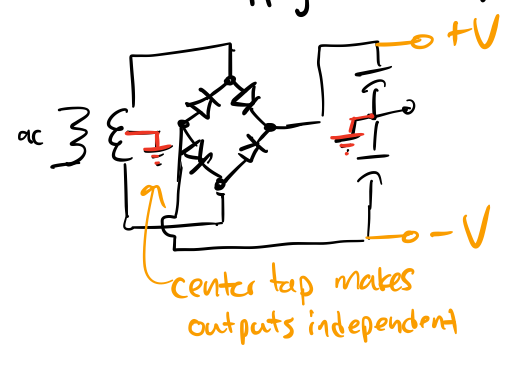 +V
ac
-V
center tap makes
outputs independent